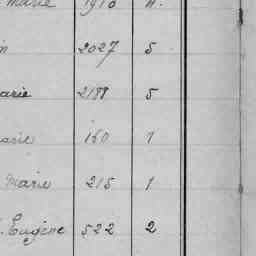 Marie 1910 4.
n 2027 5
arie 2188 5
arie 160 1
Marie 215 1
. Eugène 522 2